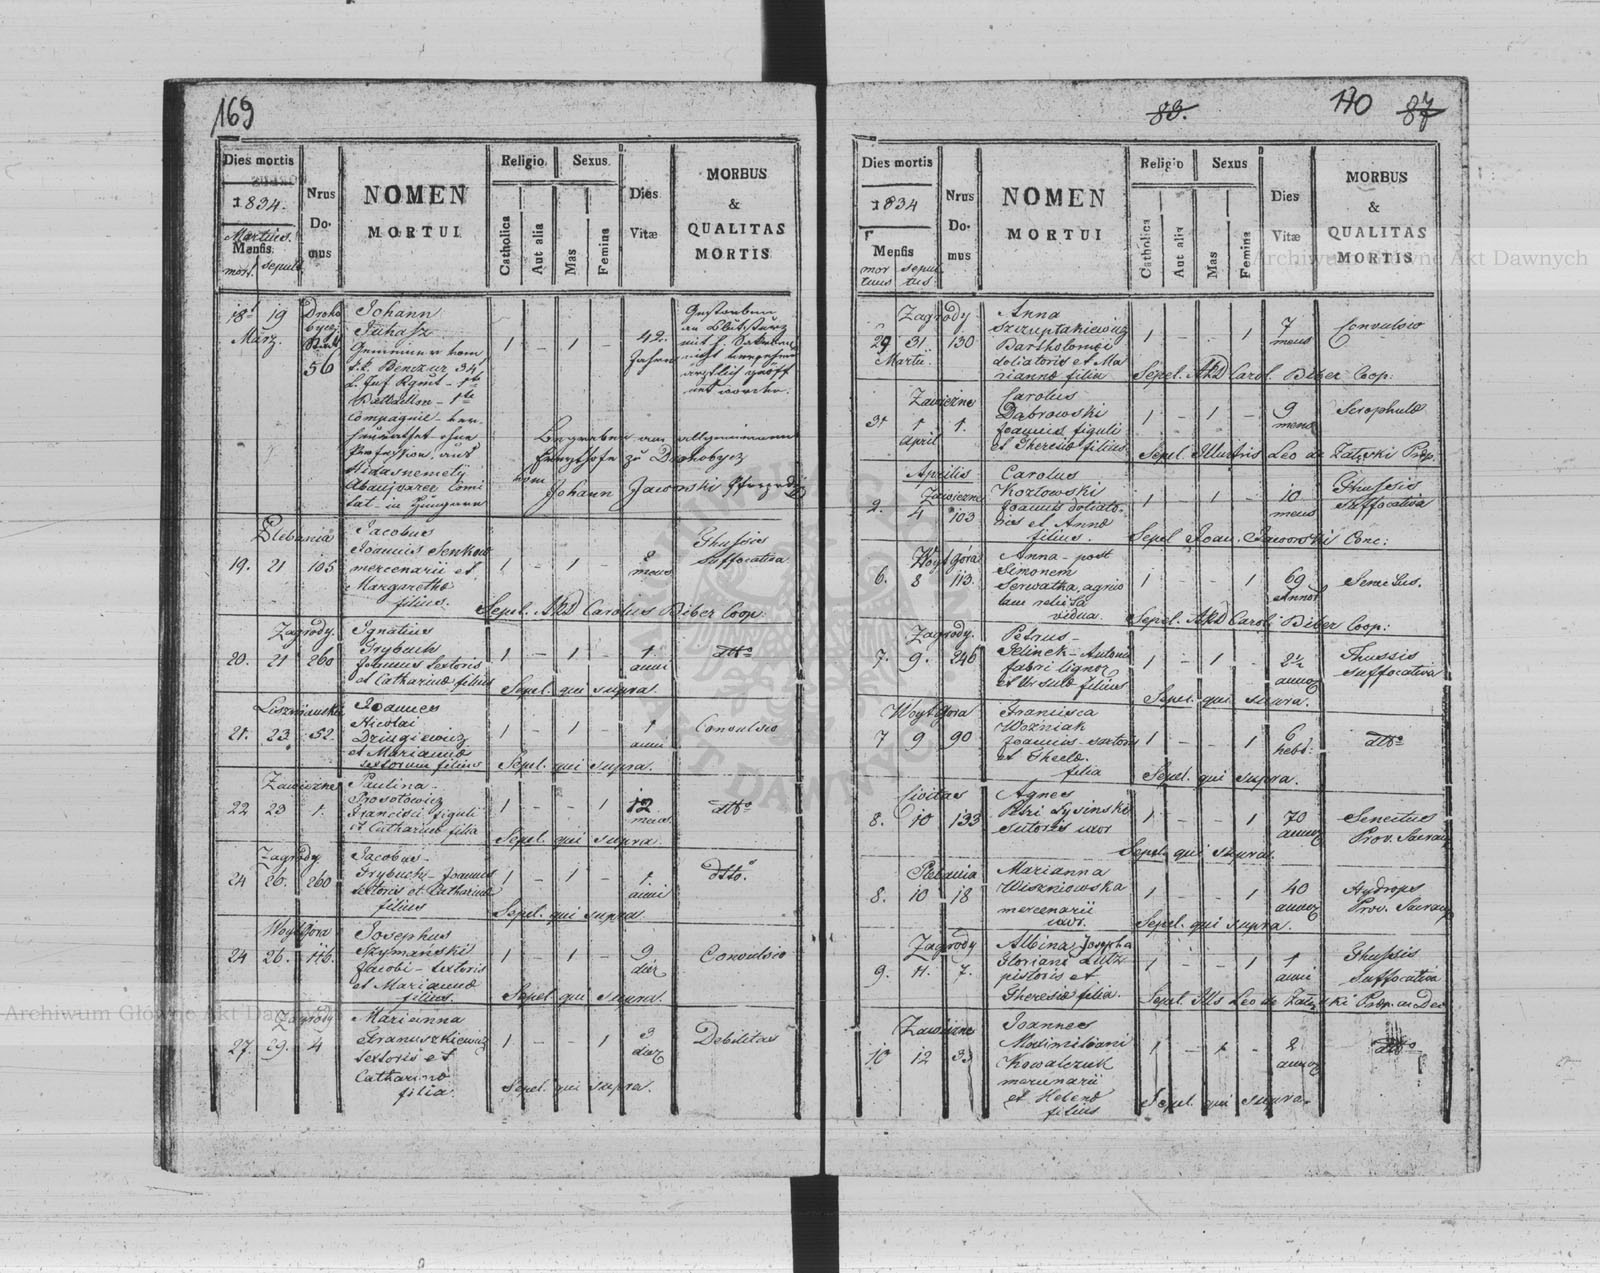 169
Dies mortis
1834.
Martius
Mensis
mort sepult
Nrus
Do-
mus
NOMEN
MORTUI
Religio
Catholica
Aut alia
Sexus
Mas
Femina
Dies
Vitæ
MORBUS
&
QUALITAS
MORTIS
18t 19
März
56
Johann
Juhasz
Gemeiner vom
Benczur 34
L. Inf Rgmt - 1te
Battaillon - 1te
Compagnie - ver
heurathet ohne
Profession, aus
Hidasnemetÿ
Abaujvarer Comi
tat - in Hungarn
1 - 1 -
42
Jahre
Gestorben
an Blutsturz
Begraben am allgemeinem
Freydhofe zu Drohobycz
vom
Johann Jaworski
Plebania
19. 21 105
Jacobus
Joannis Senkow
mercenarii et
Margarethæ
filius.
1 - 1 -
2
mens
Thussis
Suffocativa
Sepel. ARD Carolus Biber Coop:
Zagrody.
20. 21 260
Ignatius
Grybuch
Joannis textoris
et Catharinæ filius
1 - 1 -
1
anni
dtto
Sepel. qui supra.
21. 23. 52.
Joannes
Nicolai
Dziugiewicz
et Mariannæ
textorum filius
1 - 1 -
1
anni
Convulsio
Sepel. qui supra.
Zawiezne
22 23 1.
Paulina -
Prosotowicz
Francisci figuli
et Catharinæ filia
1 - - 1
12
mens.
dtto
Sepel. qui supra.
Zagrody
24 26. 260
Jacobus -
Grybuch - Joannis
textoris et Catharinæ
filius
1 - 1 -
1.
anni
dtto.
Sepel. qui supra.
Woytgóra
24 26. 116.
Josephus
Szymański
Jacobi - textoris
et Mariannæ
filius.
1 - 1 -
9
dier
Convulsio
Sepel. qui supra.
Zagrody
27. 29. 4
Marianna
Stranuszkiewicz
textoris et
Catharinæ
filia.
1 - - 1
3
dier
Debilitas
Sepel. qui supra.
83.
170
87
Dies mortis
1834
Mensis
mor sepul
tuus tus
Nrus
Do-
mus
NOMEN
MORTUI
Religio
Catholica
Aut alia
Sexus
Mas
Femina
Dies
Vitæ
MORBUS
&
QUALITAS
MORTIS
Zagrody
29 31. 130
Martii.
Anna
Szczuptakiewicz
Bartholomei
doliatoris et Ma
riannæ filia
1 - - 1
7
mens
Convulsio
Sepel. ARD Carol. Biber Coop:
Zawiezne
31 1 1.
April
Carolus
Dąbrowski
Joannis figuli
et Theresiæ filius
1 - 1 -
9
mens
Scrophulæ
Sepel. Illustris Leo de Zaleski Præp.
Aprilis
Zawiezne
2. 4 103
Carolus
Kozłowski
Joannis doliato-
ris et Annæ
filius.
1 - 1 -
10
mens
Thussis
suffocativa
Sepel Joan. Jaworski Conc:
Woytgóra
6. 8 113.
Anna - post
Simonem
Serwatka, agrico
lam relicta
vidua.
1 - - 1
69
annor
Senectus.
Sepel. ARD Caroli Biber Coop:
Zagrody.
7. 9. 246
Petrus -
Jelinek - Antonii
fabri lignor
et Ursulæ filius
1 - 1 -
annor
Thussis
suffocativa
Sepel. qui supra.
Woytgóra
7 9 90
Francisca
Woźniak
Joannis - sartoris
et Theclæ.
filia
1 - - 1
6
hebd:
dtto
Sepel. qui supra.
Civitas
8. 10 133
Agnes
Petri Łysinski
Sutoris uxor
1 - - 1
70
annor
Senectus
Prov. Sacram
Sepel. qui supra.
Plebania
8. 10 18
Marianna
Wiszniowska
mercenarii
uxor.
1 - - 1
40
annor
Hydrops
Prov. Sacram
Sepel. qui supra.
Zagrody
9. 11. 7.
Albina, Josepha
Floriani Lutz
pistoris et
Theresiæ filia.
1 - - 1
1
anni
Thussis
suffocativa
Sepel. Ills Leo de Zaleski Præp. ac Dec
Zawiezne
10 12 33
Joannes
Maximiliani
Kowalczuk
mercenarii
et Helenæ
filius
1 - 1 -
2
annor
dtto
Sepel. qui supra.
Archiwum Główne Akt Dawnych
Archiwum Główne Akt Dawnych
ARCHIWUM GŁÓWNE AKT DAWNYCH